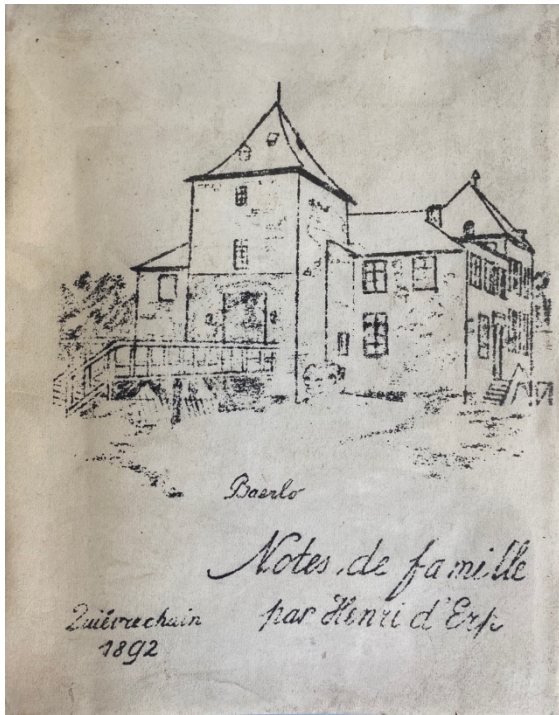 Baerlo
Notes de famille
par Henri d'Erp
Quiévrechain
1892